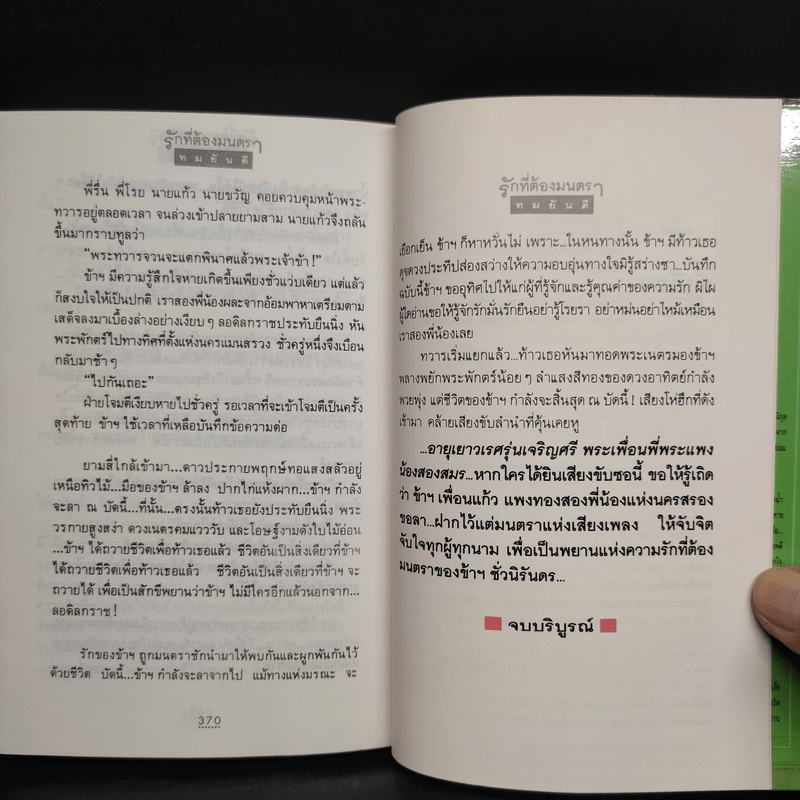 รักที่ต้องมนตรา
ทมยันตี
พี่รื่น พี่โรย นายแก้ว นายขวัญ คอยควบคุมหน้าพระ-
ทวารอยู่ตลอดเวลา จนล่วงเข้าปลายยามสาม นายแก้วจึงถลัน
ขึ้นมากราบทูลว่า
“พระทวารจวนจะแตกพินาศแล้วพระเจ้าข้า!”
ข้าฯ มีความรู้สึกใจหายเกิดขึ้นเพียงชั่วแว่บเดียว แต่แล้ว
ก็สงบใจให้เป็นปกติ เราสองพี่น้องผละจากอ้อมพาหาเตรียมตาม
เสด็จลงมาเบื้องล่างอย่างเงียบๆ ลอดิลกราชประทับยืนนิ่ง หัน
พระพักตร์ไปทางทิศที่ตั้งแห่งนครแมนสรวง ชั่วครู่หนึ่งจึงเบือน
กลับมาช้าๆ
“ไปกันเถอะ”
ฝ่ายโจมตีเงียบหายไปชั่วครู่ รอเวลาที่จะเข้าโจมตีเป็นครั้ง
สุดท้าย ข้าฯ ใช้เวลาที่เหลือบันทึกข้อความต่อ
ยามสี่ใกล้เข้ามา...ดาวประกายพฤกษ์ทอแสงสลัวอยู่
เหนือทิวไม้...มือของข้าฯ ล้าลง ปากไก่แห้งผาก...ข้าฯ กำลัง
จะลา ณ บัดนี้...ที่นั้น...ตรงนั้นท้าวเธอยังประทับยืนนิ่ง พระ
วรกายสูงสง่า ดวงเนตรคมแวววับ และโอษฐ์งามดังใบไม้อ่อน
...ข้าฯ ได้ถวายชีวิตเพื่อท้าวเธอแล้ว ชีวิตอันเป็นสิ่งเดียวที่ข้าฯ
ได้ถวายชีวิตเพื่อท้าวเธอแล้ว ชีวิตอันเป็นสิ่งเดียวที่ข้าฯ จะ
ถวายได้ เพื่อเป็นสักขีพยานว่าข้าฯ ไม่มีใครอีกแล้วนอกจาก...
ลอดิลกราช!
รักของข้าฯ ถูกมนตราชักนำมาให้พบกันและผูกพันกันไว้
ด้วยชีวิต บัดนี้...ข้าฯ กำลังจะลาจากไป แม้ทางแห่งมรณะ จะ
370
รักที่ต้องมนตรา
ทมยันตี
เยือกเย็น ข้าฯ ก็หาหวั่นไม่ เพราะ...ในหนทางนั้น ข้าฯ มีท้าวเธอ
ดุจดวงประทีปส่องสว่างให้ความอบอุ่นทางใจมิรู้สร่างซา...บันทึก
ฉบับนี้ข้าฯ ขออุทิศไปให้แก่ผู้ที่รู้จักและรู้คุณค่าของความรัก ผิไผ
ผู้ใดอ่านขอให้รู้จักรักมั่นรักยืนอย่ารู้โรยรา อย่าหม่นอย่าไหม้เหมือน
เราสองพี่น้องเลย
ทวารเริ่มแยกแล้ว...ท้าวเธอหันมาทอดพระเนตรมองข้าฯ
พลางพยักพระพักตร์น้อยๆ ลำแสงสีทองของดวงอาทิตย์กำลัง
พวยพุ่ง แต่ชีวิตของข้าฯ กำลังจะสิ้นสุด ณ บัดนี้! เสียงโห่ฮึกที่ดัง
เข้ามา คล้ายเสียงขับลำนำที่คุ้นเคยหู
...อายุเยาวเรศรุ่นเจริญศรี พระเพื่อนพี่พระแพง
น้องสองสมร...หากใครได้ยินเสียงขับซอนี้ ขอให้รู้เถิด
ว่า ข้าฯ เพื่อนแก้ว แพงทองสองพี่น้องแห่งนครสรอง
ขอลา...ฝากไว้แต่มนตราแห่งเสียงเพลง ให้จับจิต
จับใจทุกผู้ทุกนาม เพื่อเป็นพยานแห่งความรักที่ต้อง
มนตราของข้าฯ ชั่วนิรันดร...
จบบริบูรณ์